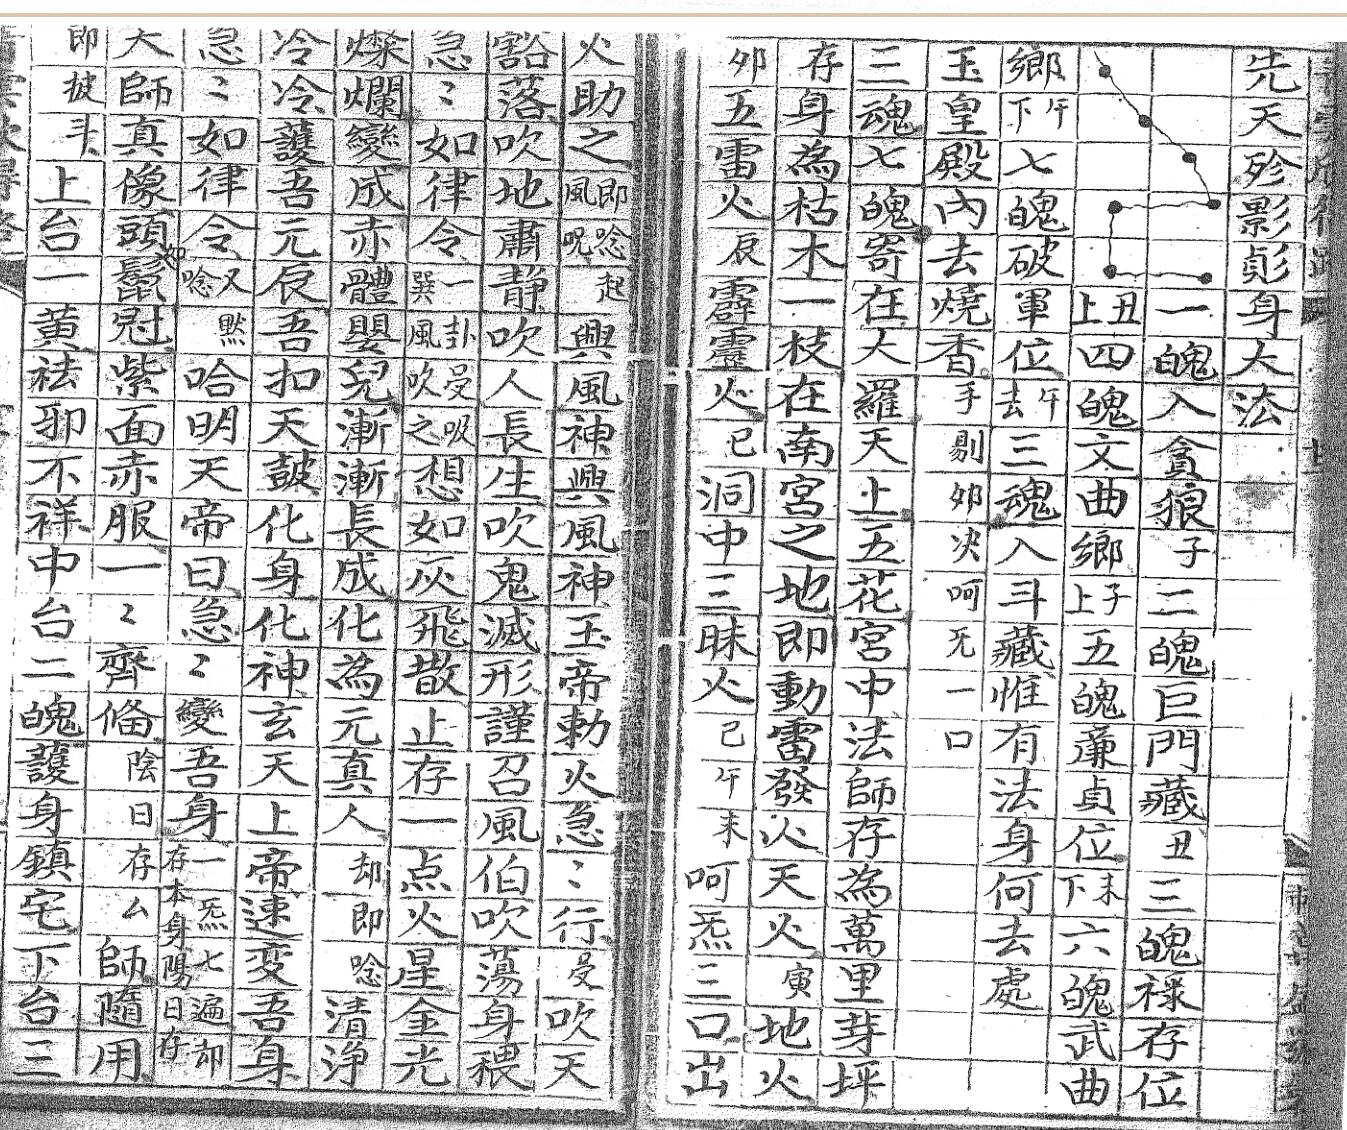 先天殄影彰身大法
一魄入貪狼子二魄巨門藏丑三魄祿存位
丑上四魄文曲鄉子上五魄蓮貞位未下六魄武曲
鄉午下七魄破軍位午去三魂入斗藏惟有法身何去處
玉皇殿內去燒香手剔卯决呵旡一口
三魂七魄寄在大羅天上五花宮中法師存為萬里芽坪
存身為枯木一枝在南宮之地即動雷發火天火寅地火
卯五雷火辰霹靂火巳洞中三昧火己午未呵炁三口出
火助之即唸風呪起興風神興風神玉帝勅火急〻行受吹天
豁落吹地肅靜吹人長生吹鬼滅形謹召風伯吹蕩身穢
急〻如律令一卦巽風受吸吹之想如灰飛散止存一点火星金光
燦爛變成赤體嬰兒漸漸長成化為元真人却即唸清淨
冷冷護吾元辰吾扣天鼓化身化神玄天上帝速变吾身
急〻如律令又唸黙哈明天帝日急〻變吾身一炁七遍却存本身陽日存
天師真像頭鬚冠紫面赤服一〻齊俻陰日存厶師隨用
即披斗上台一黃祛邪不祥中台二魄護身鎮宅下台三